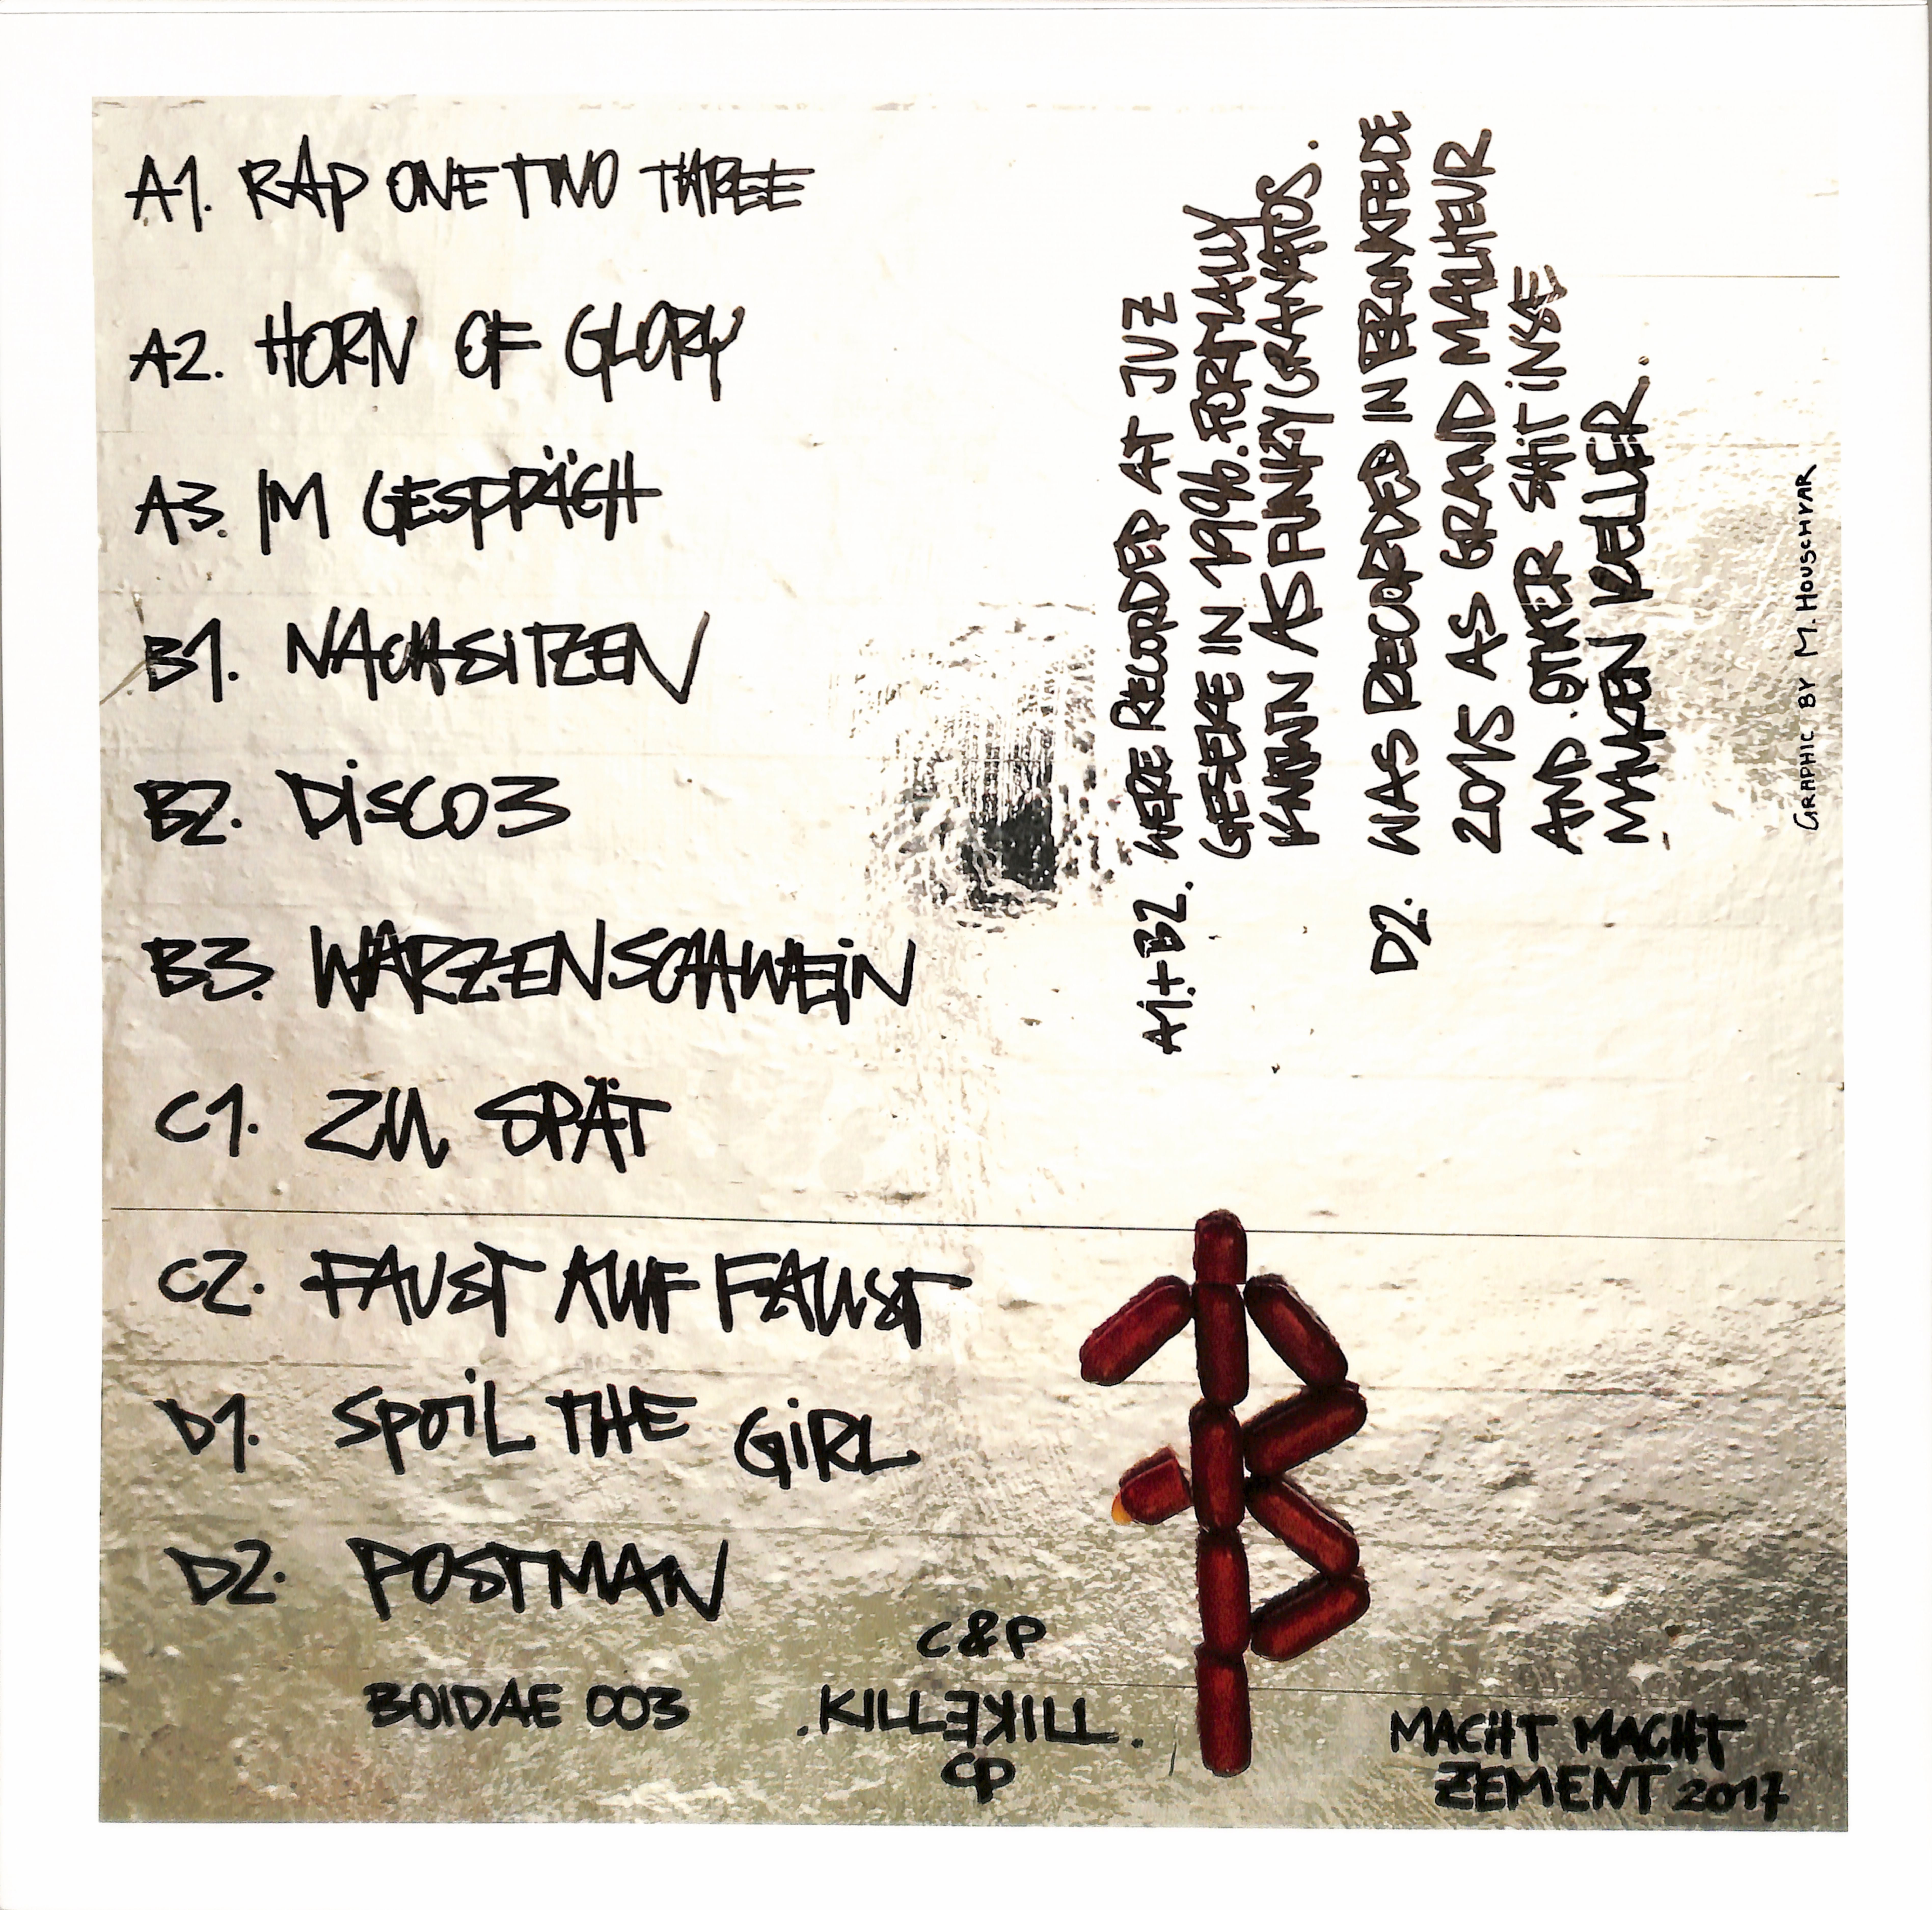 A1. RAP ONE TWO THREE
A2. HORN OF GLORY
A3. IM GESPRÄCH
B1. NACHSITZEN
B2. DISCO3
B3. WARZENSCHWEIN
C1. ZU SPÄT
C2. FAUST AUF FAUST
D1. SPOIL THE GIRL
D2. POSTMAN
BOIDAE 003
C&P
.KILLEKILL.
CP
A1.+B2. WERE RECORDED AT JUZ
GESEKE IN 1996. FORMALLY
KNOWN AS FUNKY GRANATOS.
D2. WAS RECORDED IN
2015 AS GRAND MALHEUR
AND OTHER SHIT
KELLER.
GRAPHIC BY M. HOUSCHYAR
MACHT MACHT
ZEMENT 2017